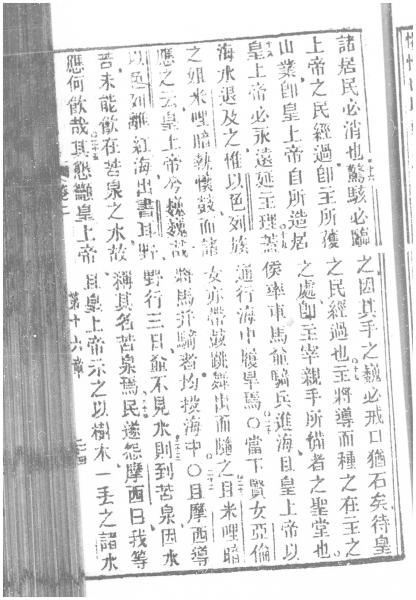 諸居民必消也驚駭必臨之因其手之巍必戒口猶石矣待皇
上帝之民經過即主所獲之民經過也主將導而種之在主之
山業即皇上帝自所造居之處即主宰親手所備者之聖堂也
皇上帝必永遠延王理蓋侯率車馬兼騎兵進海且皇上帝以
海水退及之惟以色列族通行海中履旱焉○當下賢女亞倫
之姐米哩暗執懷鼓而諸女亦帶鼓跳舞出而隨之且米哩暗
應之云皇上帝兮巍巍哉將馬并騎者均投海中○且摩西導
以色列離紅海出書耳野野行三日兼不見水則到苦泉因水
苦未能飲在苦泉之水故稱其名苦泉焉民遂怨摩西曰我等
應何飲哉其懇籲皇上帝且皇上帝示之以樹木一丟之諸水
卷二 第十六章